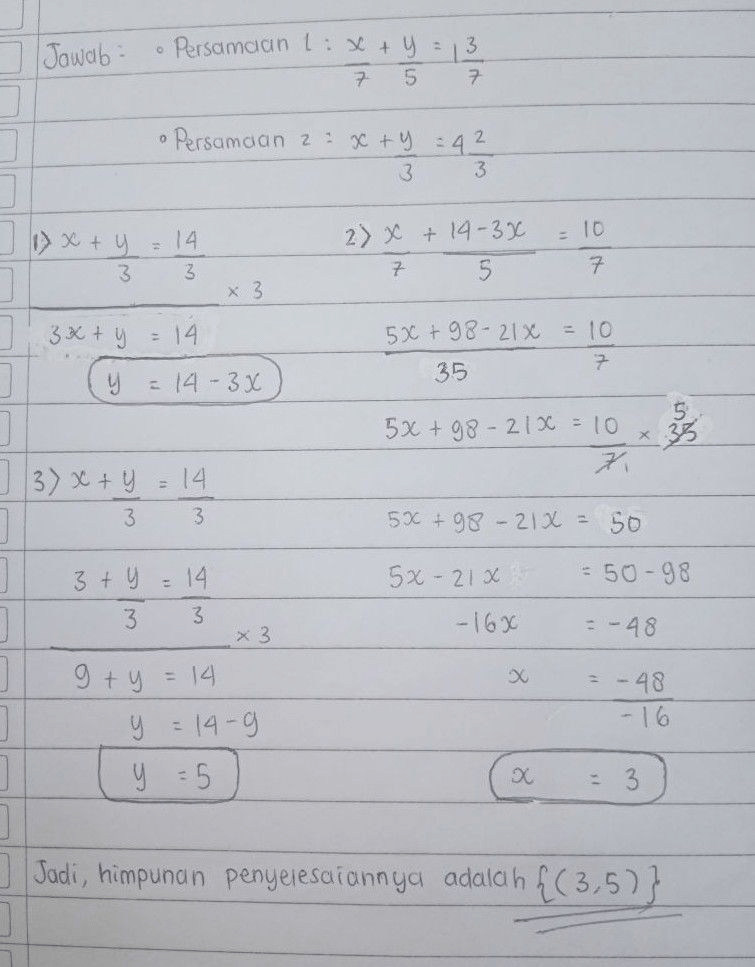 Jawab: ∘ Persamaan 1 : x/7 + y/5 = 1 3/7
∘ Persamaan 2 : x + y/3 = 4 2/3
1) x + y/3 = 14/3
× 3
3x + y = 14
y = 14 - 3x
2) x/7 + (14 - 3x)/5 = 10/7
(5x + 98 - 21x)/35 = 10/7
5x + 98 - 21x = 10/7 × 35
1 5
5x + 98 - 21x = 50
5x - 21x = 50 - 98
-16x = -48
x = -48/-16
x = 3
3) x + y/3 = 14/3
3 + y/3 = 14/3
× 3
9 + y = 14
y = 14 - 9
y = 5
Jadi, himpunan penyelesaiannya adalah {(3,5)}